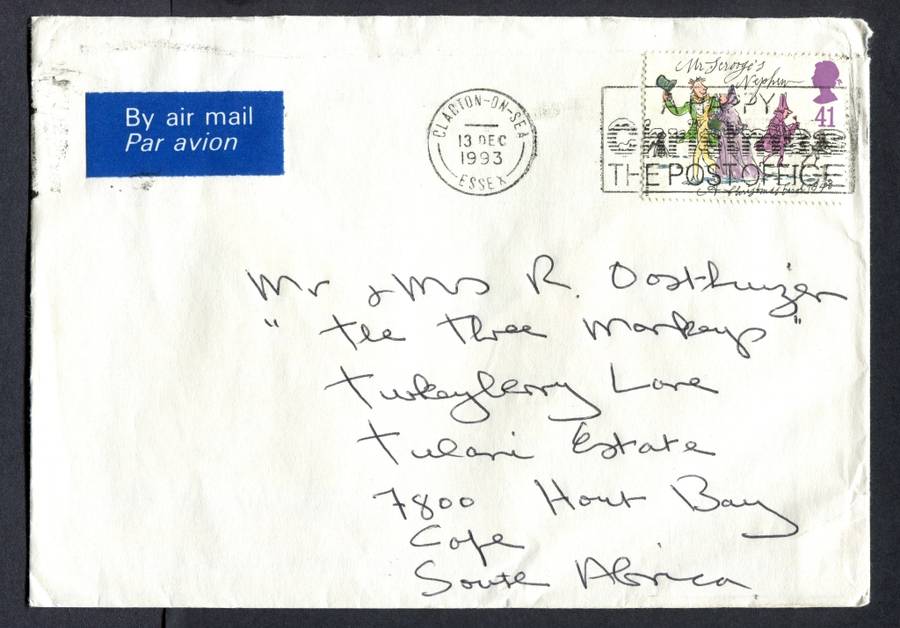 By air mail
Par avion
CLACTON-ON-SEA
13 DEC
1993
ESSEX
Mr Scrooge's
Nephew
41
THE POST OFFICE
Mr & Mrs R. Oosthuizen
"The Three Monkeys"
Turkeyberry Lane
Tulani Estate
7800 Hout Bay
Cape
South Africa